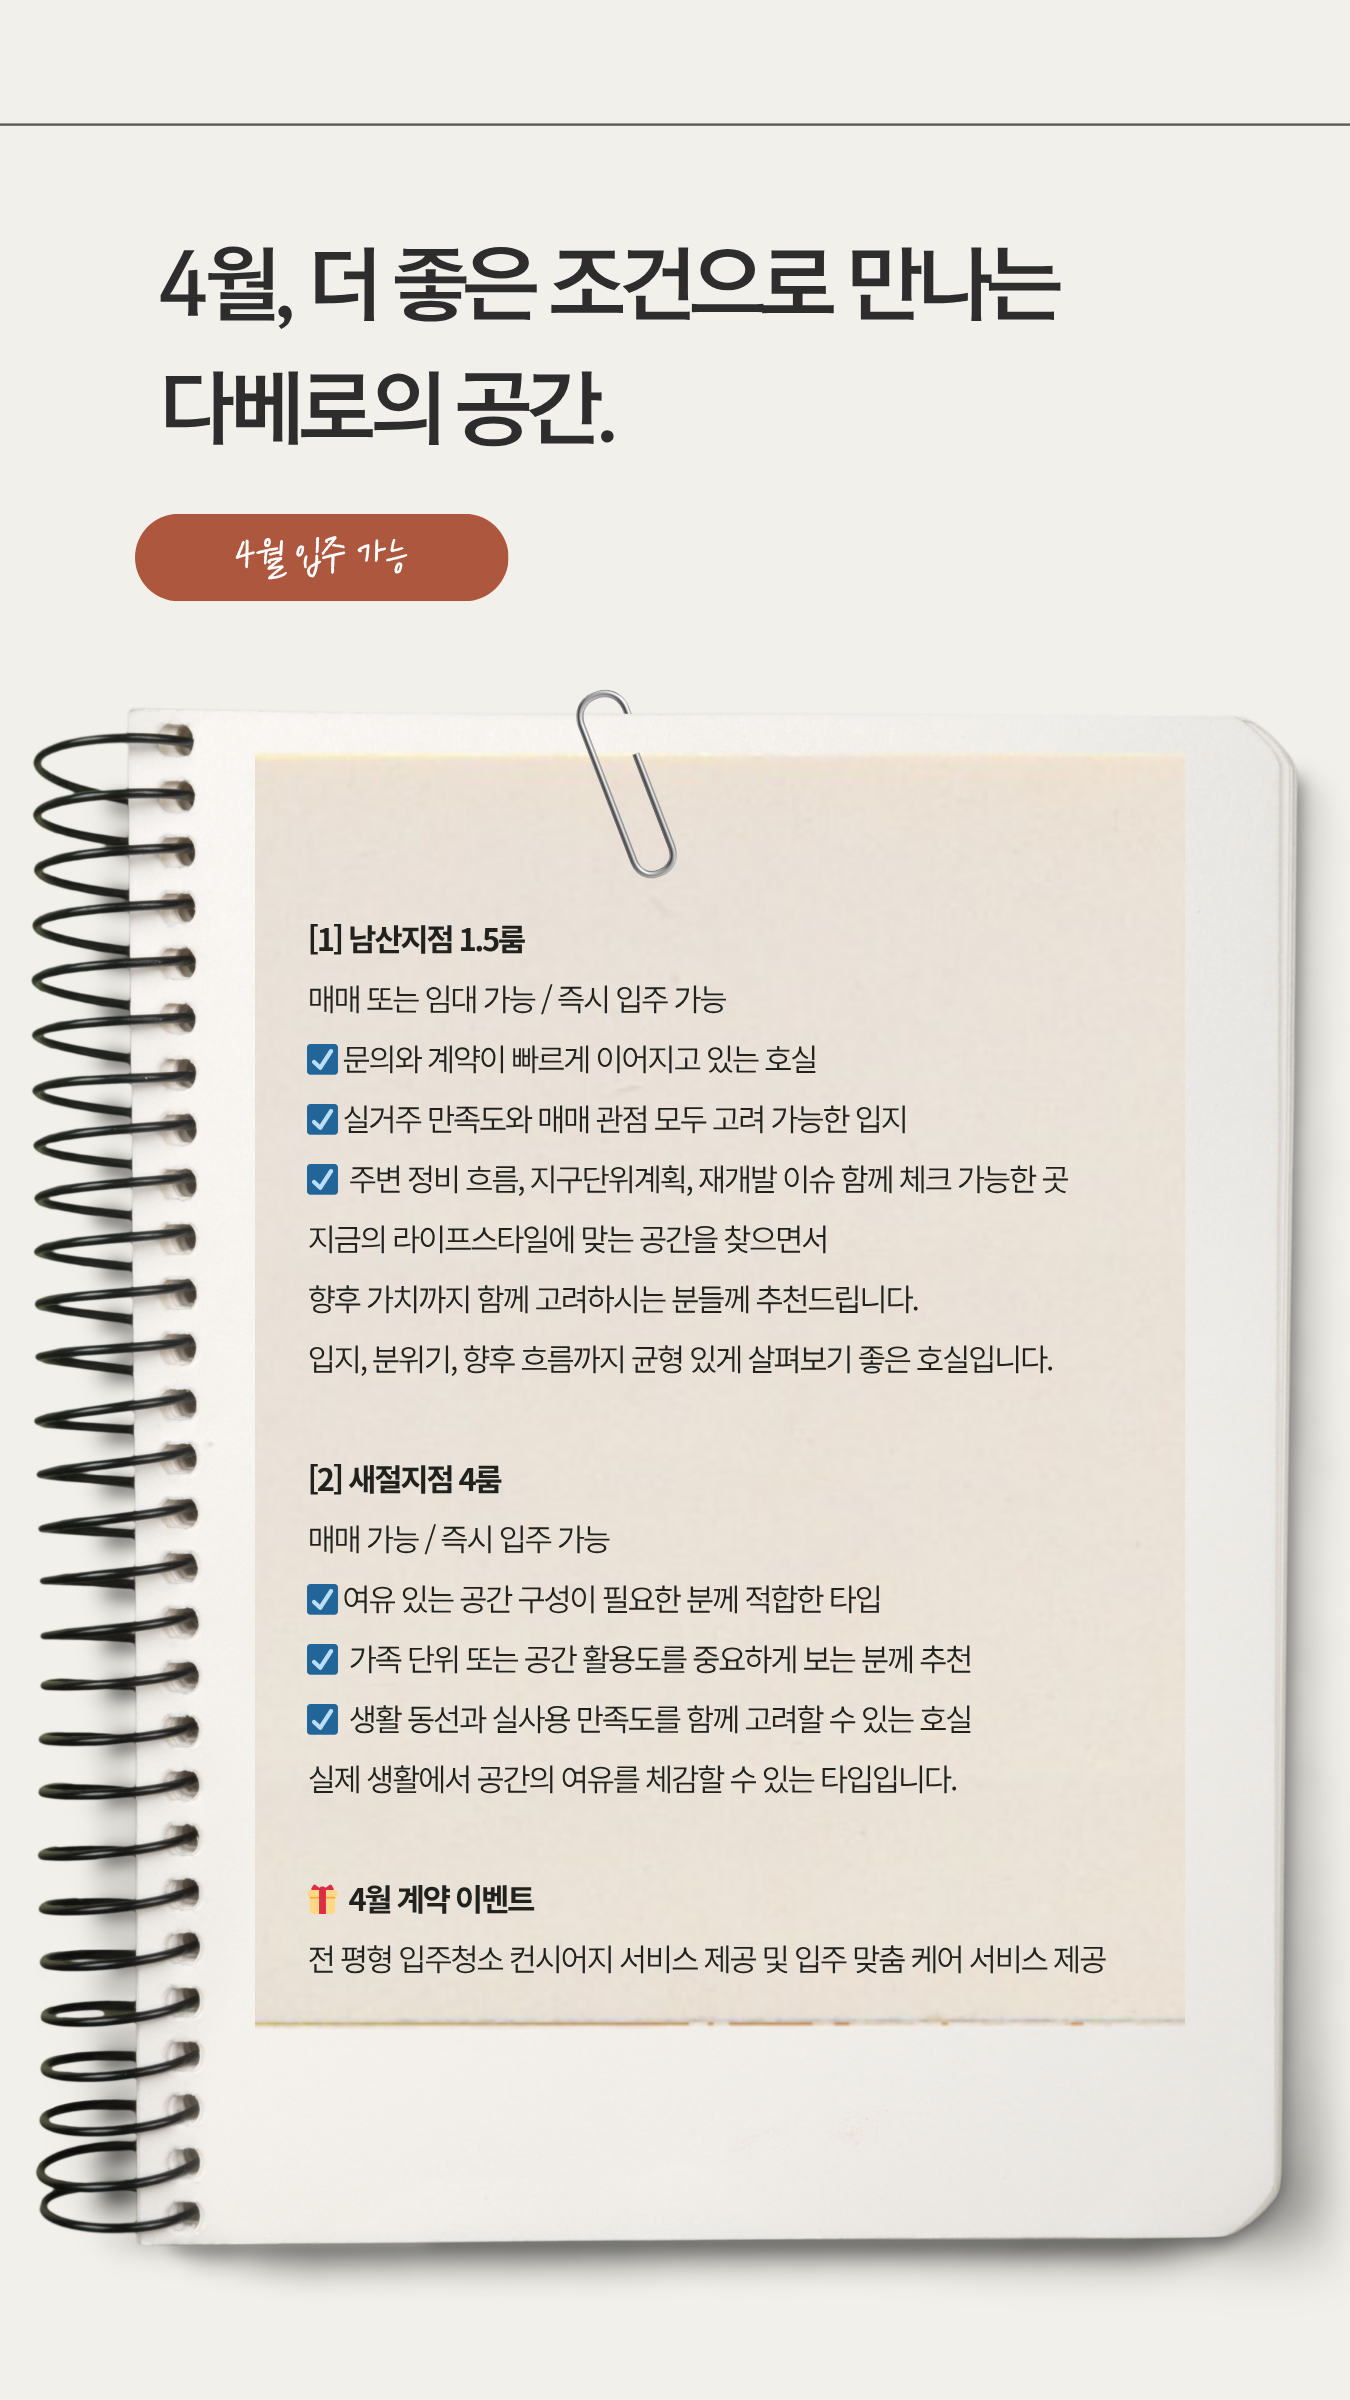 4월, 더 좋은 조건으로 만나는
다베로의 공간.
4월 입주 가능
[1] 남산지점 1.5룸
매매 또는 임대 가능 / 즉시 입주 가능
☑ 문의와 계약이 빠르게 이어지고 있는 호실
☑ 실거주 만족도와 매매 관점 모두 고려 가능한 입지
☑ 주변 정비 흐름, 지구단위계획, 재개발 이슈 함께 체크 가능한 곳
지금의 라이프스타일에 맞는 공간을 찾으면서
향후 가치까지 함께 고려하시는 분들께 추천드립니다.
입지, 분위기, 향후 흐름까지 균형 있게 살펴보기 좋은 호실입니다.
[2] 새절지점 4룸
매매 가능 / 즉시 입주 가능
☑ 여유 있는 공간 구성이 필요한 분께 적합한 타입
☑ 가족 단위 또는 공간 활용도를 중요하게 보는 분께 추천
☑ 생활 동선과 실사용 만족도를 함께 고려할 수 있는 호실
실제 생활에서 공간의 여유를 체감할 수 있는 타입입니다.
🎁 4월 계약 이벤트
전 평형 입주청소 컨시어지 서비스 제공 및 입주 맞춤 케어 서비스 제공